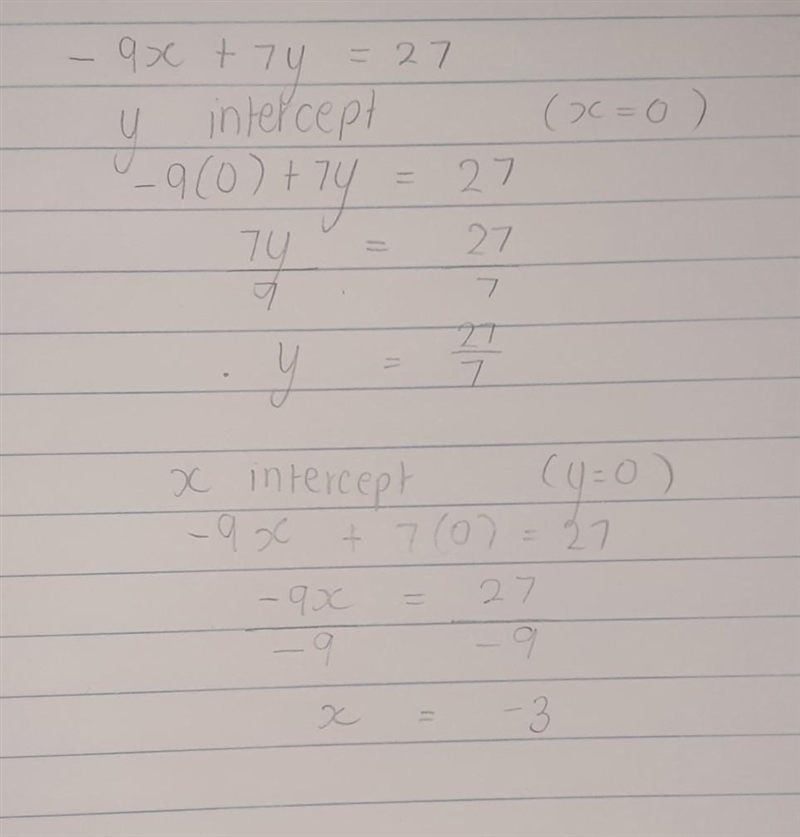 - 9x + 7y = 27
y intercept (x = 0)
-9(0) + 7y = 27
7y = 27
9 7
. y = 27/7
x intercept (y=0)
-9x + 7(0) = 27
-9x = 27
-9 -9
x = -3